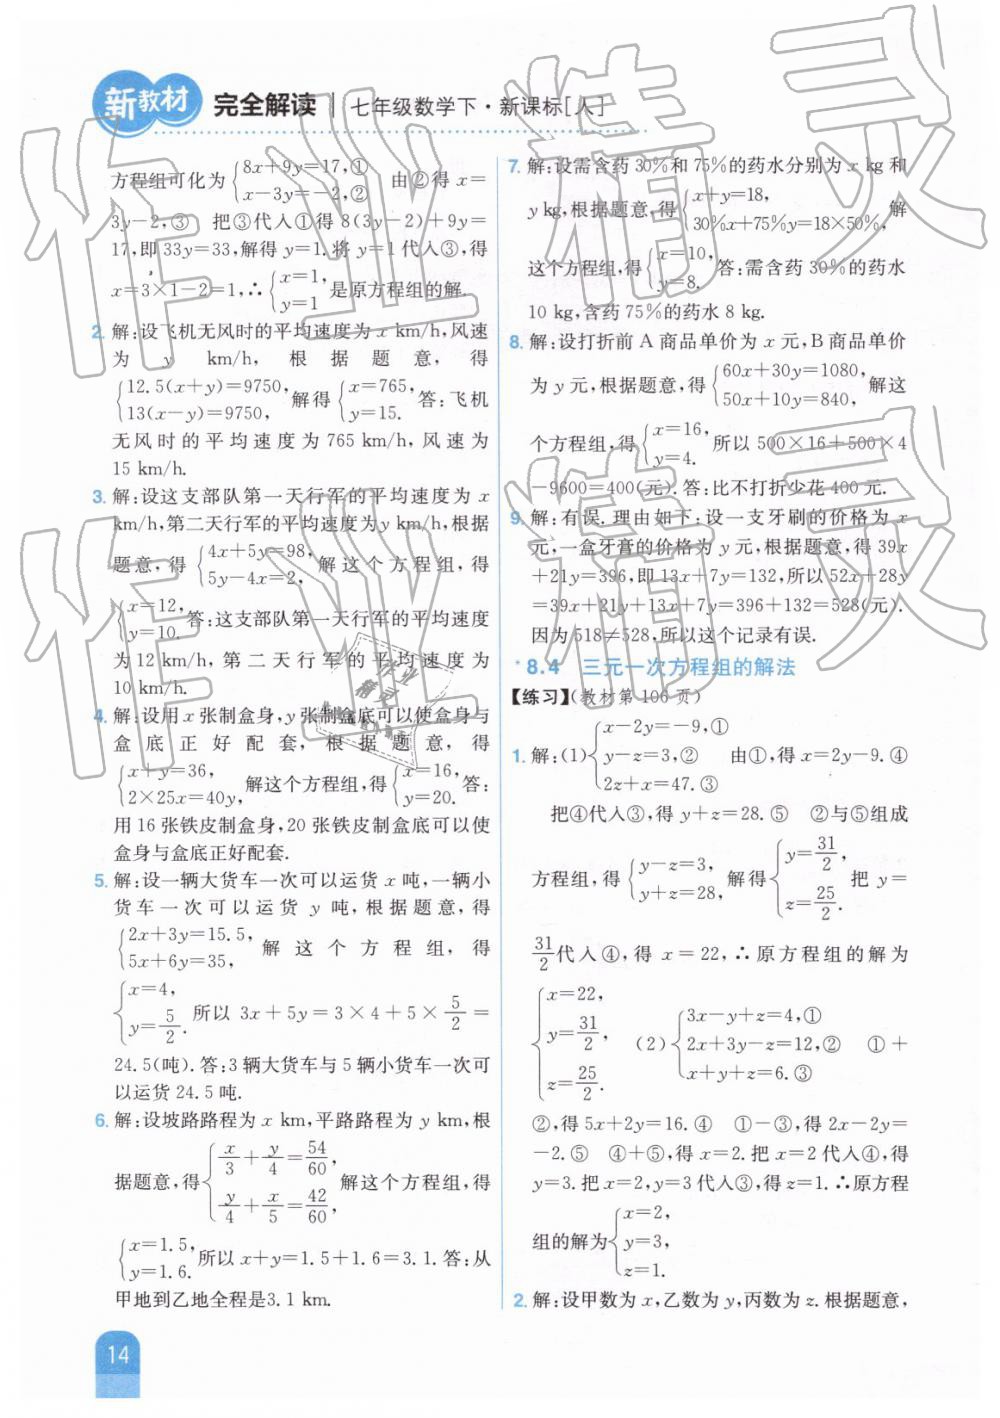 新教材 完全解读 七年级数学下·新课标[人]
方程组可化为{8x+9y=17,① x-3y=-2,② 由②得 x=
3y-2,③ 把③代入①得 8(3y-2)+9y=
17,即 33y=33,解得 y=1. 将 y=1 代入③,得
x=3×1-2=1,∴{x=1, y=1 是原方程组的解.
2. 解:设飞机无风时的平均速度为 x km/h,风速
为 y km/h,根据题意,得
{12.5(x+y)=9750, 13(x-y)=9750, 解得{x=765, y=15. 答:飞机
无风时的平均速度为 765 km/h,风速为
15 km/h.
3. 解:设这支部队第一天行军的平均速度为 x
km/h,第二天行军的平均速度为y km/h,根据
题意,得{4x+5y=98, 5y-4x=2, 解这个方程组,得
{x=12, y=10. 答:这支部队第一天行军的平均速度
为12 km/h,第二天行军的平均速度为
10 km/h.
4. 解:设用 x 张制盒身,y 张制盒底可以使盒身与
盒底正好配套,根据题意,得
{x+y=36, 2×25x=40y, 解这个方程组,得{x=16, y=20. 答:
用 16 张铁皮制盒身,20 张铁皮制盒底可以使
盒身与盒底正好配套.
5. 解:设一辆大货车一次可以运货 x 吨,一辆小
货车一次可以运货 y 吨,根据题意,得
{2x+3y=15.5, 5x+6y=35, 解这个方程组,得
{x=4, y=5/2. 所以 3x+5y=3×4+5×5/2=
24.5(吨). 答:3 辆大货车与 5 辆小货车一次可
以运货 24.5 吨.
6. 解:设坡路路程为 x km,平路路程为 y km,根
据题意,得{x/3+y/4=54/60, y/4+x/5=42/60, 解这个方程组,得
{x=1.5, y=1.6. 所以 x+y=1.5+1.6=3.1. 答:从
甲地到乙地全程是3.1 km.
14
7. 解:设需含药 30%和 75%的药水分别为 x kg 和
y kg,根据题意,得{x+y=18, 30%x+75%y=18×50%, 解
这个方程组,得{x=10, y=8. 答:需含药 30%的药水
10 kg,含药 75%的药水 8 kg.
8. 解:设打折前 A 商品单价为 x 元,B 商品单价
为 y 元,根据题意,得{60x+30y=1080, 50x+10y=840, 解这
个方程组,得{x=16, y=4. 所以 500×16+500×4
-9600=400(元). 答:比不打折少花 400 元.
9. 解:有误. 理由如下:设一支牙刷的价格为 x
元,一盒牙膏的价格为 y 元,根据题意,得 39x
+21y=396,即 13x+7y=132,所以 52x+28y
=39x+21y+13x+7y=396+132=528(元).
因为518≠528,所以这个记录有误.
*8.4 三元一次方程组的解法
【练习】(教材第 106 页)
1. 解:(1){x-2y=-9,① y-z=3,② 2z+x=47.③ 由①,得 x=2y-9.④
把④代入③,得 y+z=28.⑤ ②与⑤组成
方程组,得{y-z=3, y+z=28, 解得{y=31/2, z=25/2. 把 y=
31/2代入④,得 x=22,∴原方程组的解为
{x=22, y=31/2, z=25/2. (2){3x-y+z=4,① 2x+3y-z=12,② x+y+z=6.③ ①+
②,得 5x+2y=16.④ ①-③,得 2x-2y=
-2.⑤ ④+⑤,得 x=2. 把 x=2 代入④,得
y=3. 把 x=2,y=3 代入③,得 z=1. ∴原方程
组的解为{x=2, y=3, z=1.
2. 解:设甲数为 x,乙数为 y,丙数为 z. 根据题意,
作业精灵
作业精灵
作业精灵